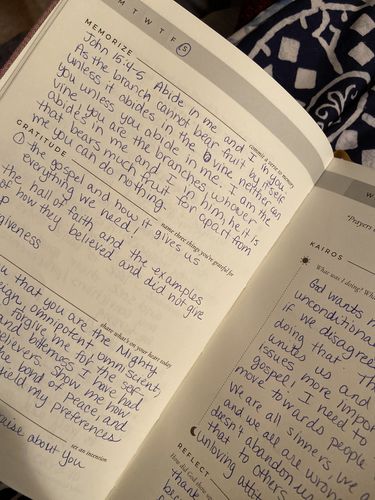 M T W T F S
MEMORIZE
commit a verse to memory
John 15:4-5 Abide in me and I in you
As the branch cannot bear fruit by itself
unless it abides in the vine neither can
you unless you abide in me. I am the
vine; you are the branches. whoever
abides in me and I in him he it is
that bears much fruit for apart from
me you can do nothing.
GRATITUDE
name three things you're grateful for
① the gospel and how it gives us
everything we need!
the hall of faith and the examples
of how they believed and did not give
p
giveness
share what's on your heart today
u that you are the Mighty
eign, omnipotent omniscient,
forgive me for the self
and bitterness I have had
believers. Show me how
the bond of peace, and
ield my preferences
set an intention
cause about you
W
"Prayers
KAIROS
What was I doing? Wh
God wants m
unconditiona
if we disagree
doing that. Th
unites us and
issues more impor
gospel. I need to
move towards people
We are all sinners
and we all are wrong
doesn't abandon us
that to others
unloving
REFLECT
How did God
thank